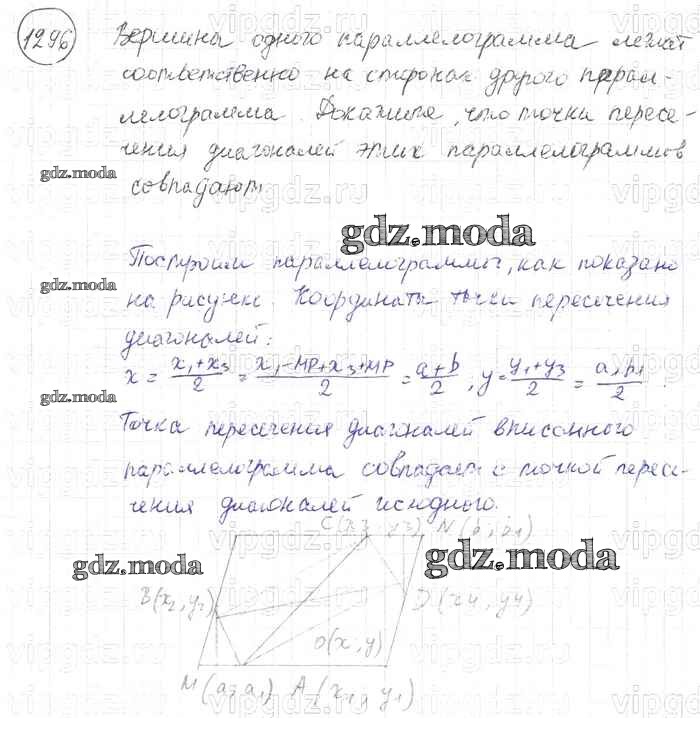 1296
Вершины одного параллелограмма лежат
соответственно на сторонах другого парал-
лелограмма. Докажите, что точки пересе-
чения диагоналей этих параллелограммов
gdz.moda
совпадают.
gdz.moda
Построим параллелограммы, как показано
gdz.moda
на рисунке. Координаты точки пересечения
диагоналей:
x = (x₁+x₃)/2 = (x₁-MP+x₃+MP)/2 = (a+b)/2, y = (y₁+y₃)/2 = (a₁b₁)/2.
gdz.moda
Точка пересечения диагоналей вписанного
параллелограмма совпадает с точкой пересе-
чения диагоналей исходного.
C(x3, y3) N(b, b1)
gdz.moda gdz.moda
B(x₂, y₂) D(x4, y4)
O(x, y)
M(a, a₁) A(x₁, y₁)
vipgdz.ru